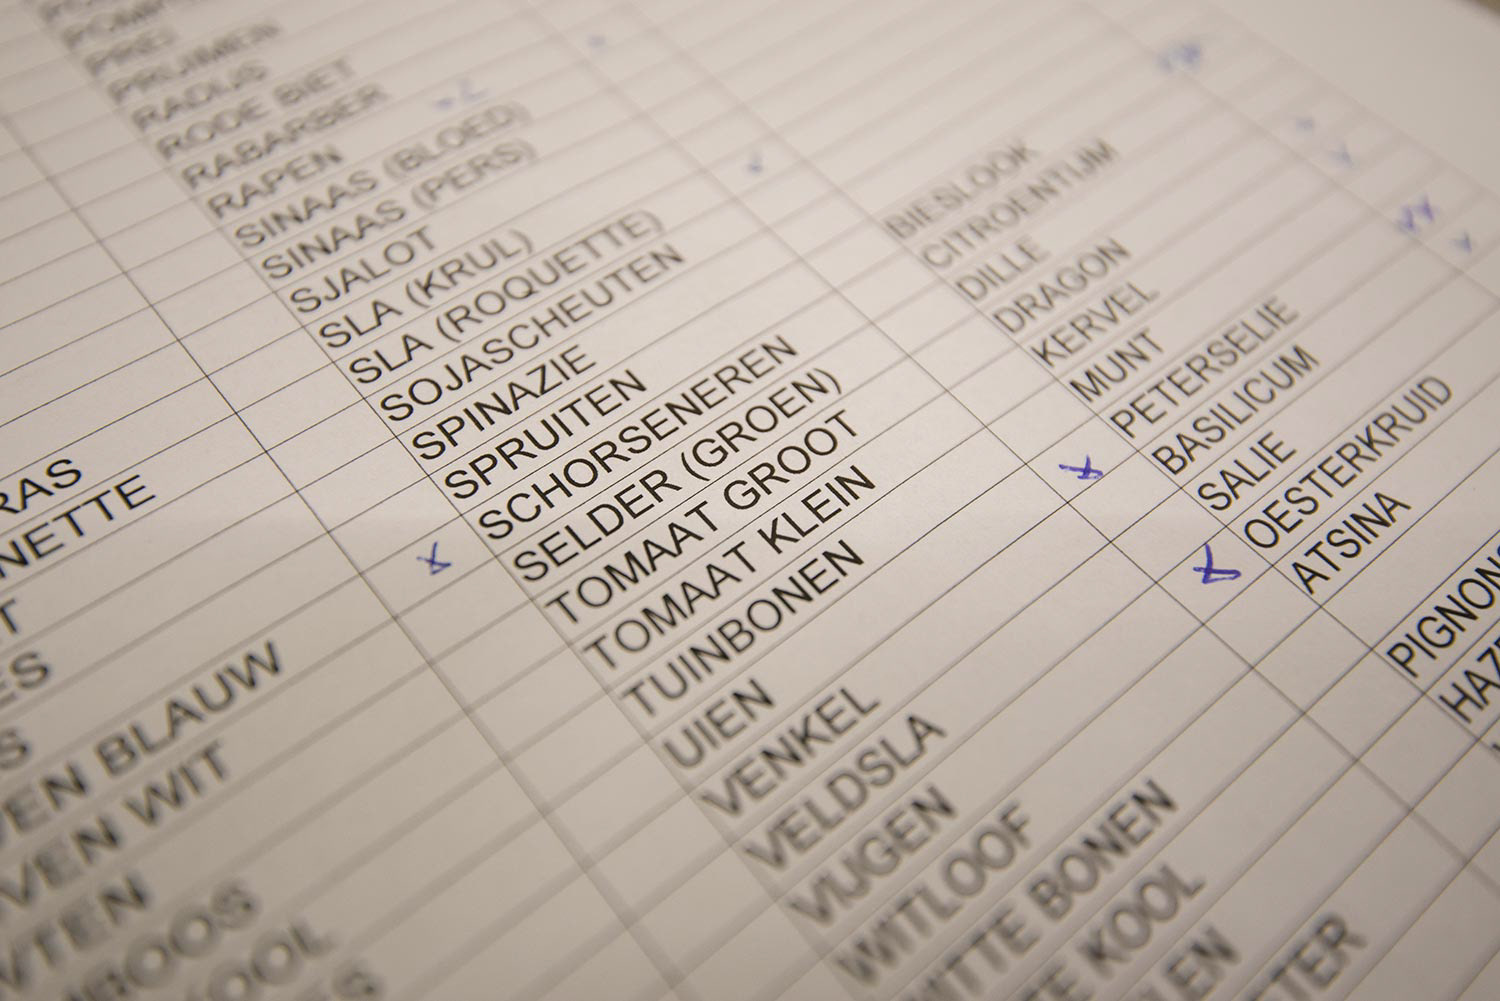 PREI
PRUIMEN
RADIJS
RODE BIET
RABARBER
RAPEN
SINAAS (BLOED)
SINAAS (PERS)
SJALOT
SLA (KRUL)
SLA (ROQUETTE)
SOJASCHEUTEN
SPINAZIE
SPRUITEN
SCHORSENEREN
SELDER (GROEN)
TOMAAT GROOT
TOMAAT KLEIN
TUINBONEN
UIEN
VENKEL
VELDSLA
VIJGEN
WITLOOF
WITTE BONEN
KOOL
BLAUW
WIT
BIESLOOK
CITROENTIJM
DILLE
DRAGON
KERVEL
MUNT
PETERSELIE
BASILICUM
SALIE
OESTERKRUID
ATSINA